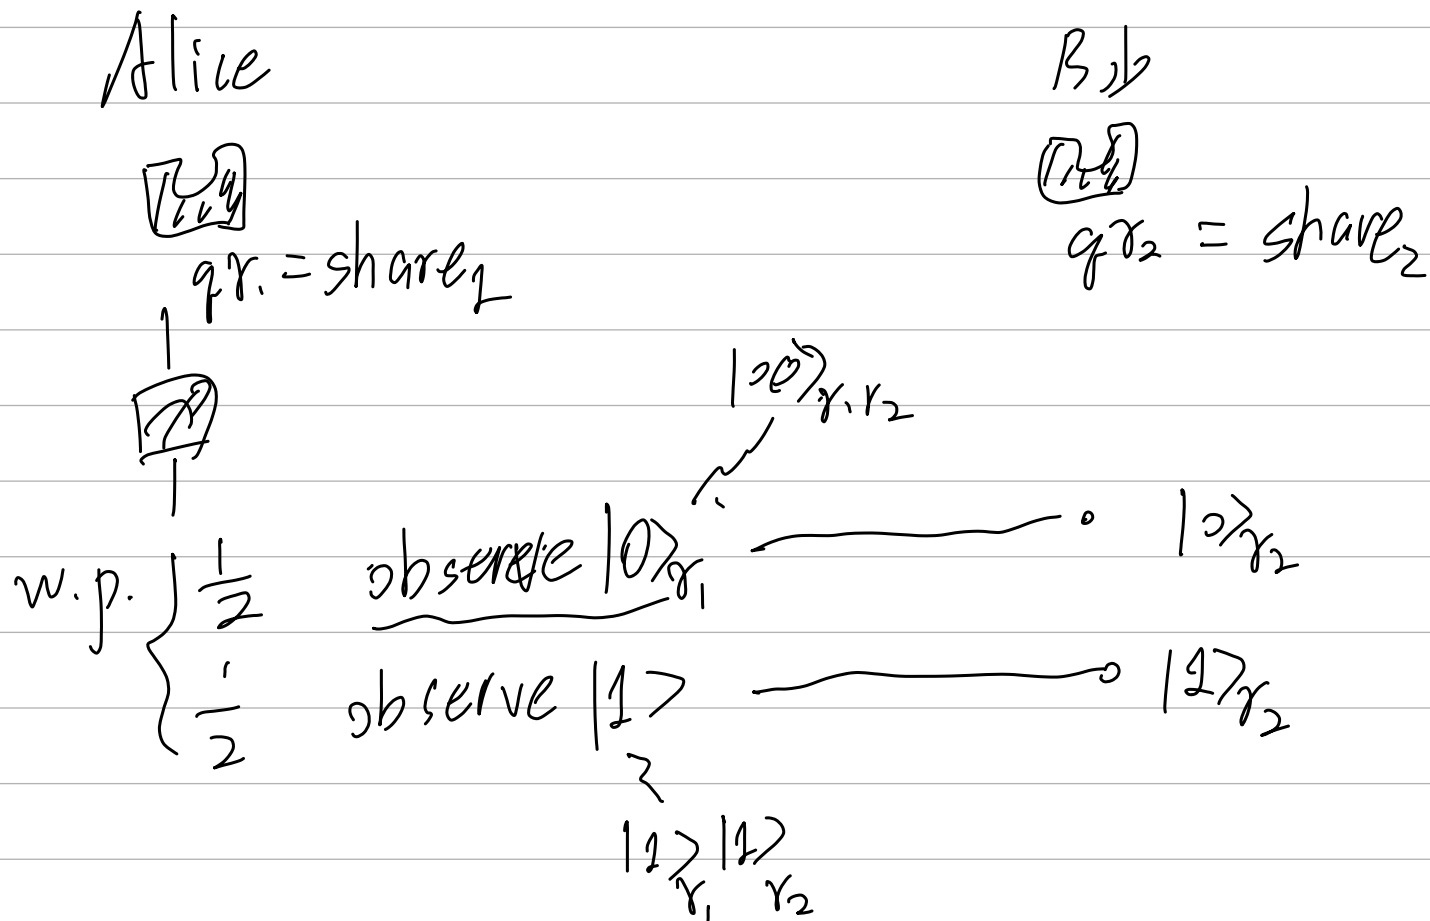 Alice Bob
qr₁ = share₁ qr₂ = share₂
|00⟩r₁r₂
w.p. { 1/2 observe |0⟩r₁ |0⟩r₂
1/2 observe |1⟩ |1⟩r₂
|1⟩r₁ |1⟩r₂